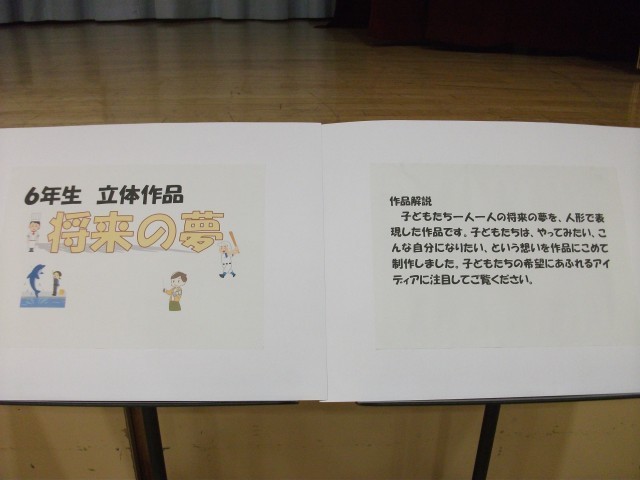 6年生 立体作品
将来の夢
作品解説
子どもたち一人一人の将来の夢を、人形で表
現した作品です。子どもたちは、やってみたい、こ
んな自分になりたい、という想いを作品にこめて
制作しました。子どもたちの希望にあふれるアイ
ディアに注目してご覧ください。